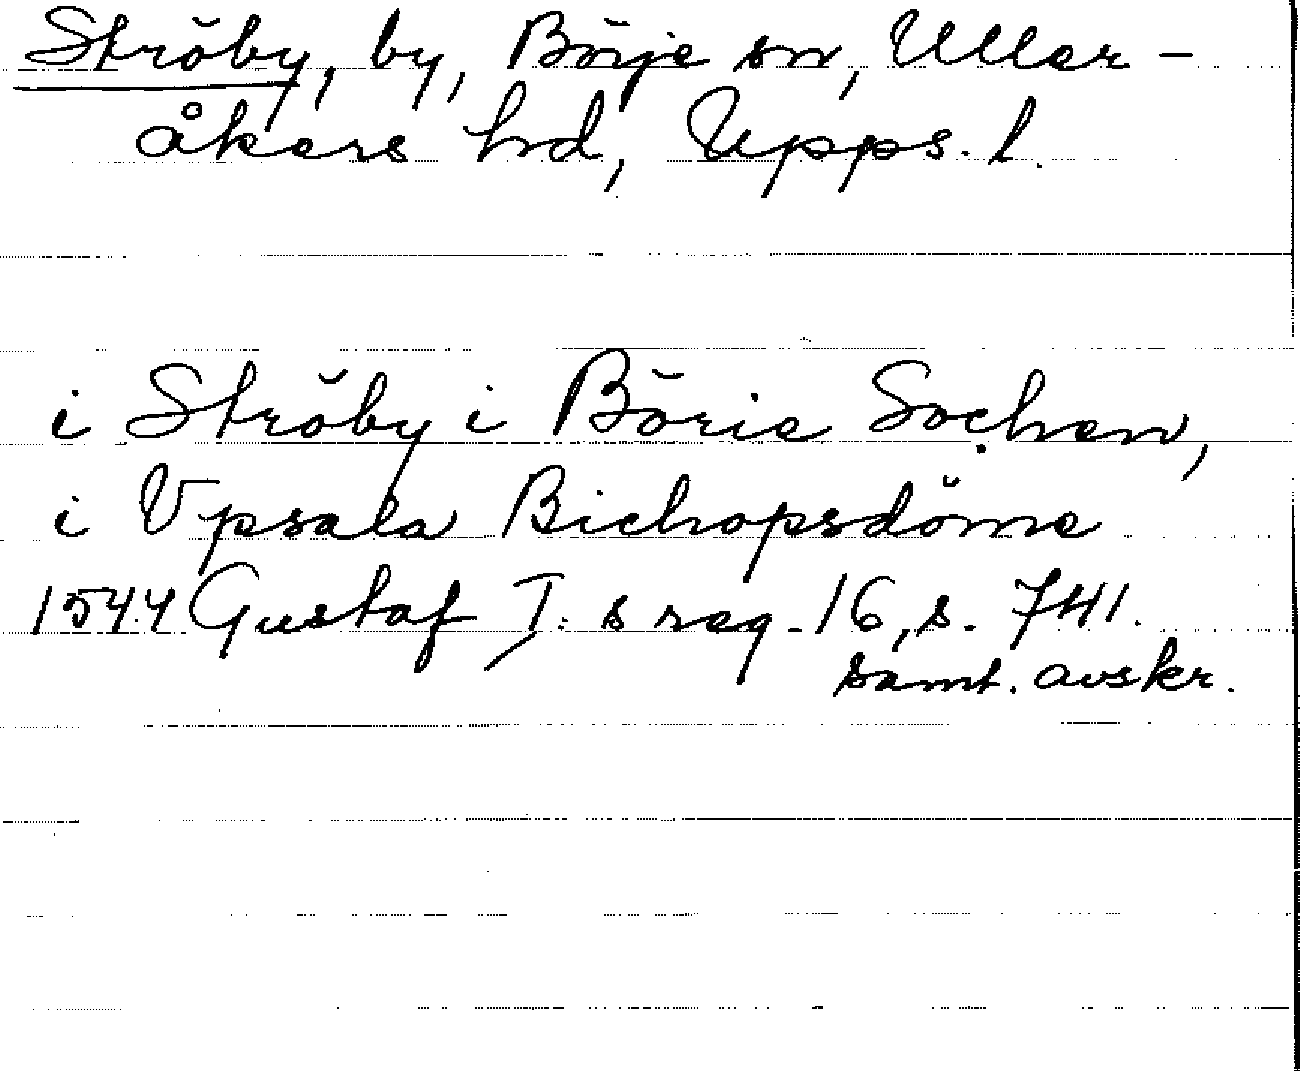 Ströby, by, Börje sn, Uller-
åkers hd, Upps. l.
i Ströby i Börie Sochen,
i Vpsala Bichopsdöme
1544 Gustaf I:s reg. 16, s. 741.
samt. avskr.